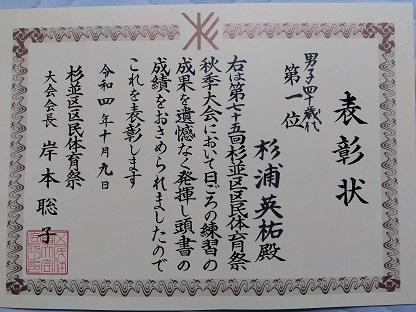 表彰状
男子四十歳代
第一位
杉浦英祐殿
右は第七十五回杉並区区民体育祭
秋季大会において日ごろの練習の
成果を遺憾なく発揮し頭書の
成績をおさめられましたので
これを表彰します
令和四年十月九日
杉並区区民体育祭
大会会長 岸本聡子